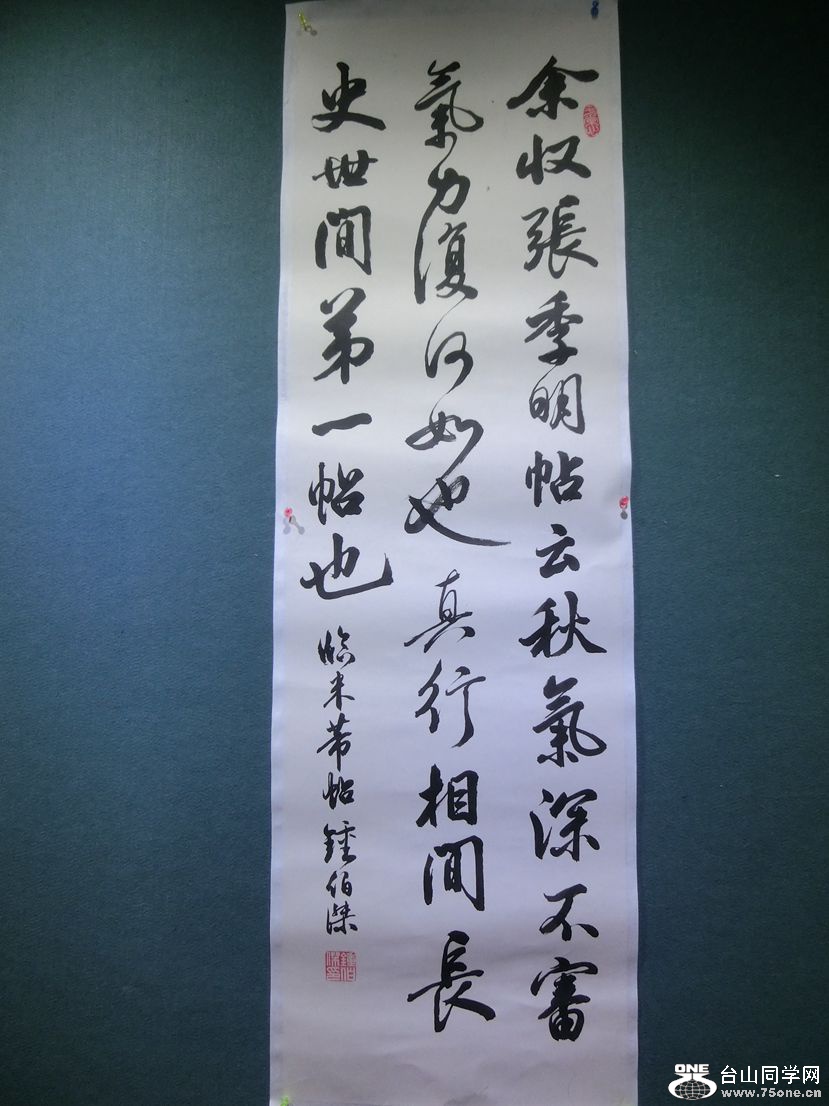 余收張季明帖云秋氣深不審
氣力復何如也真行相間長
史世間第一帖也
臨米芾帖鍾伯傑
鍾伯傑印
ONE
台山同学网
www.75one.cn